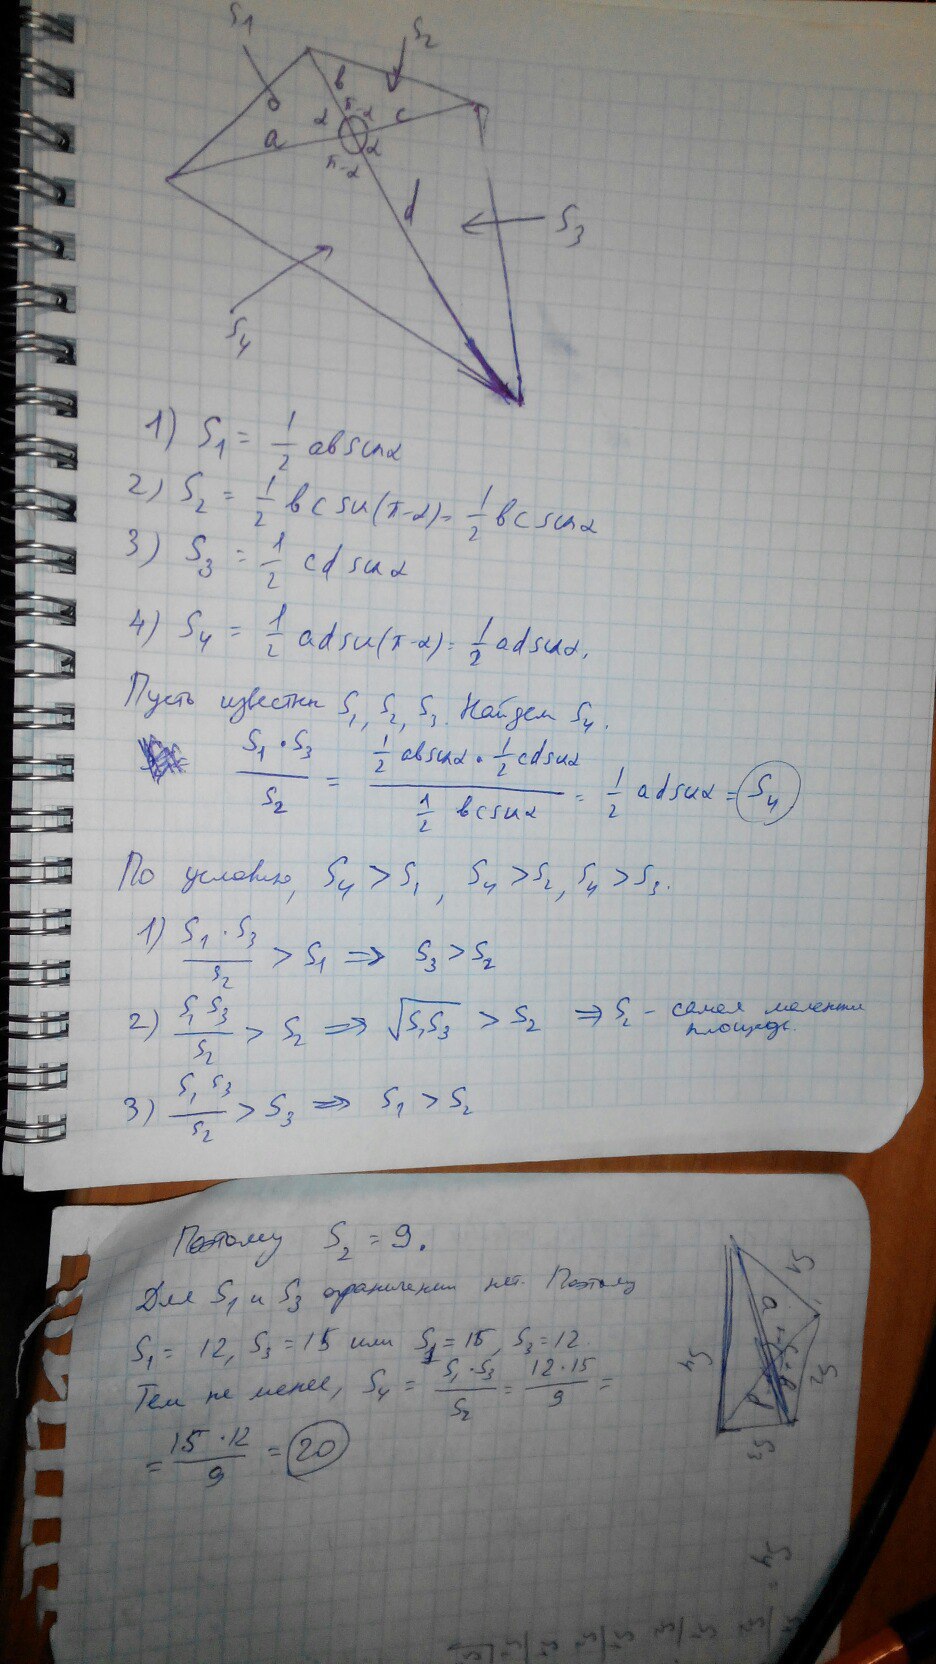 S₁
S₂
b
π-α
α
c
a
α
π-α
d
S₃
S₄
1) S₁ = 1/2 ab sin α
2) S₂ = 1/2 bc sin(π-α) = 1/2 bc sin α
3) S₃ = 1/2 cd sin α
4) S₄ = 1/2 ad sin(π-α) = 1/2 ad sin α.
Пусть известны S₁, S₂, S₃. Найдем S₄.
S₁·S₃/S₂ = (1/2 ab sin α · 1/2 cd sin α)/(1/2 bc sin α) = 1/2 ad sin α = S₄
По условию, S₄ > S₁, S₄ > S₂, S₄ > S₃.
1) S₁·S₃/S₂ > S₁ ⇒ S₃ > S₂
2) S₁S₃/S₂ > S₂ ⇒ √S₁S₃ > S₂ ⇒ S₂ - самая маленькая
площадь.
3) S₁S₃/S₂ > S₃ ⇒ S₁ > S₂
Поэтому S₂ = 9.
Для S₁ и S₃ ограничений нет. Поэтому
S₁ = 12, S₃ = 15 или S₁ = 15, S₃ = 12.
Тем не менее, S₄ = S₁·S₃/S₂ = 12·15/9 =
= 15·12/9 = 20